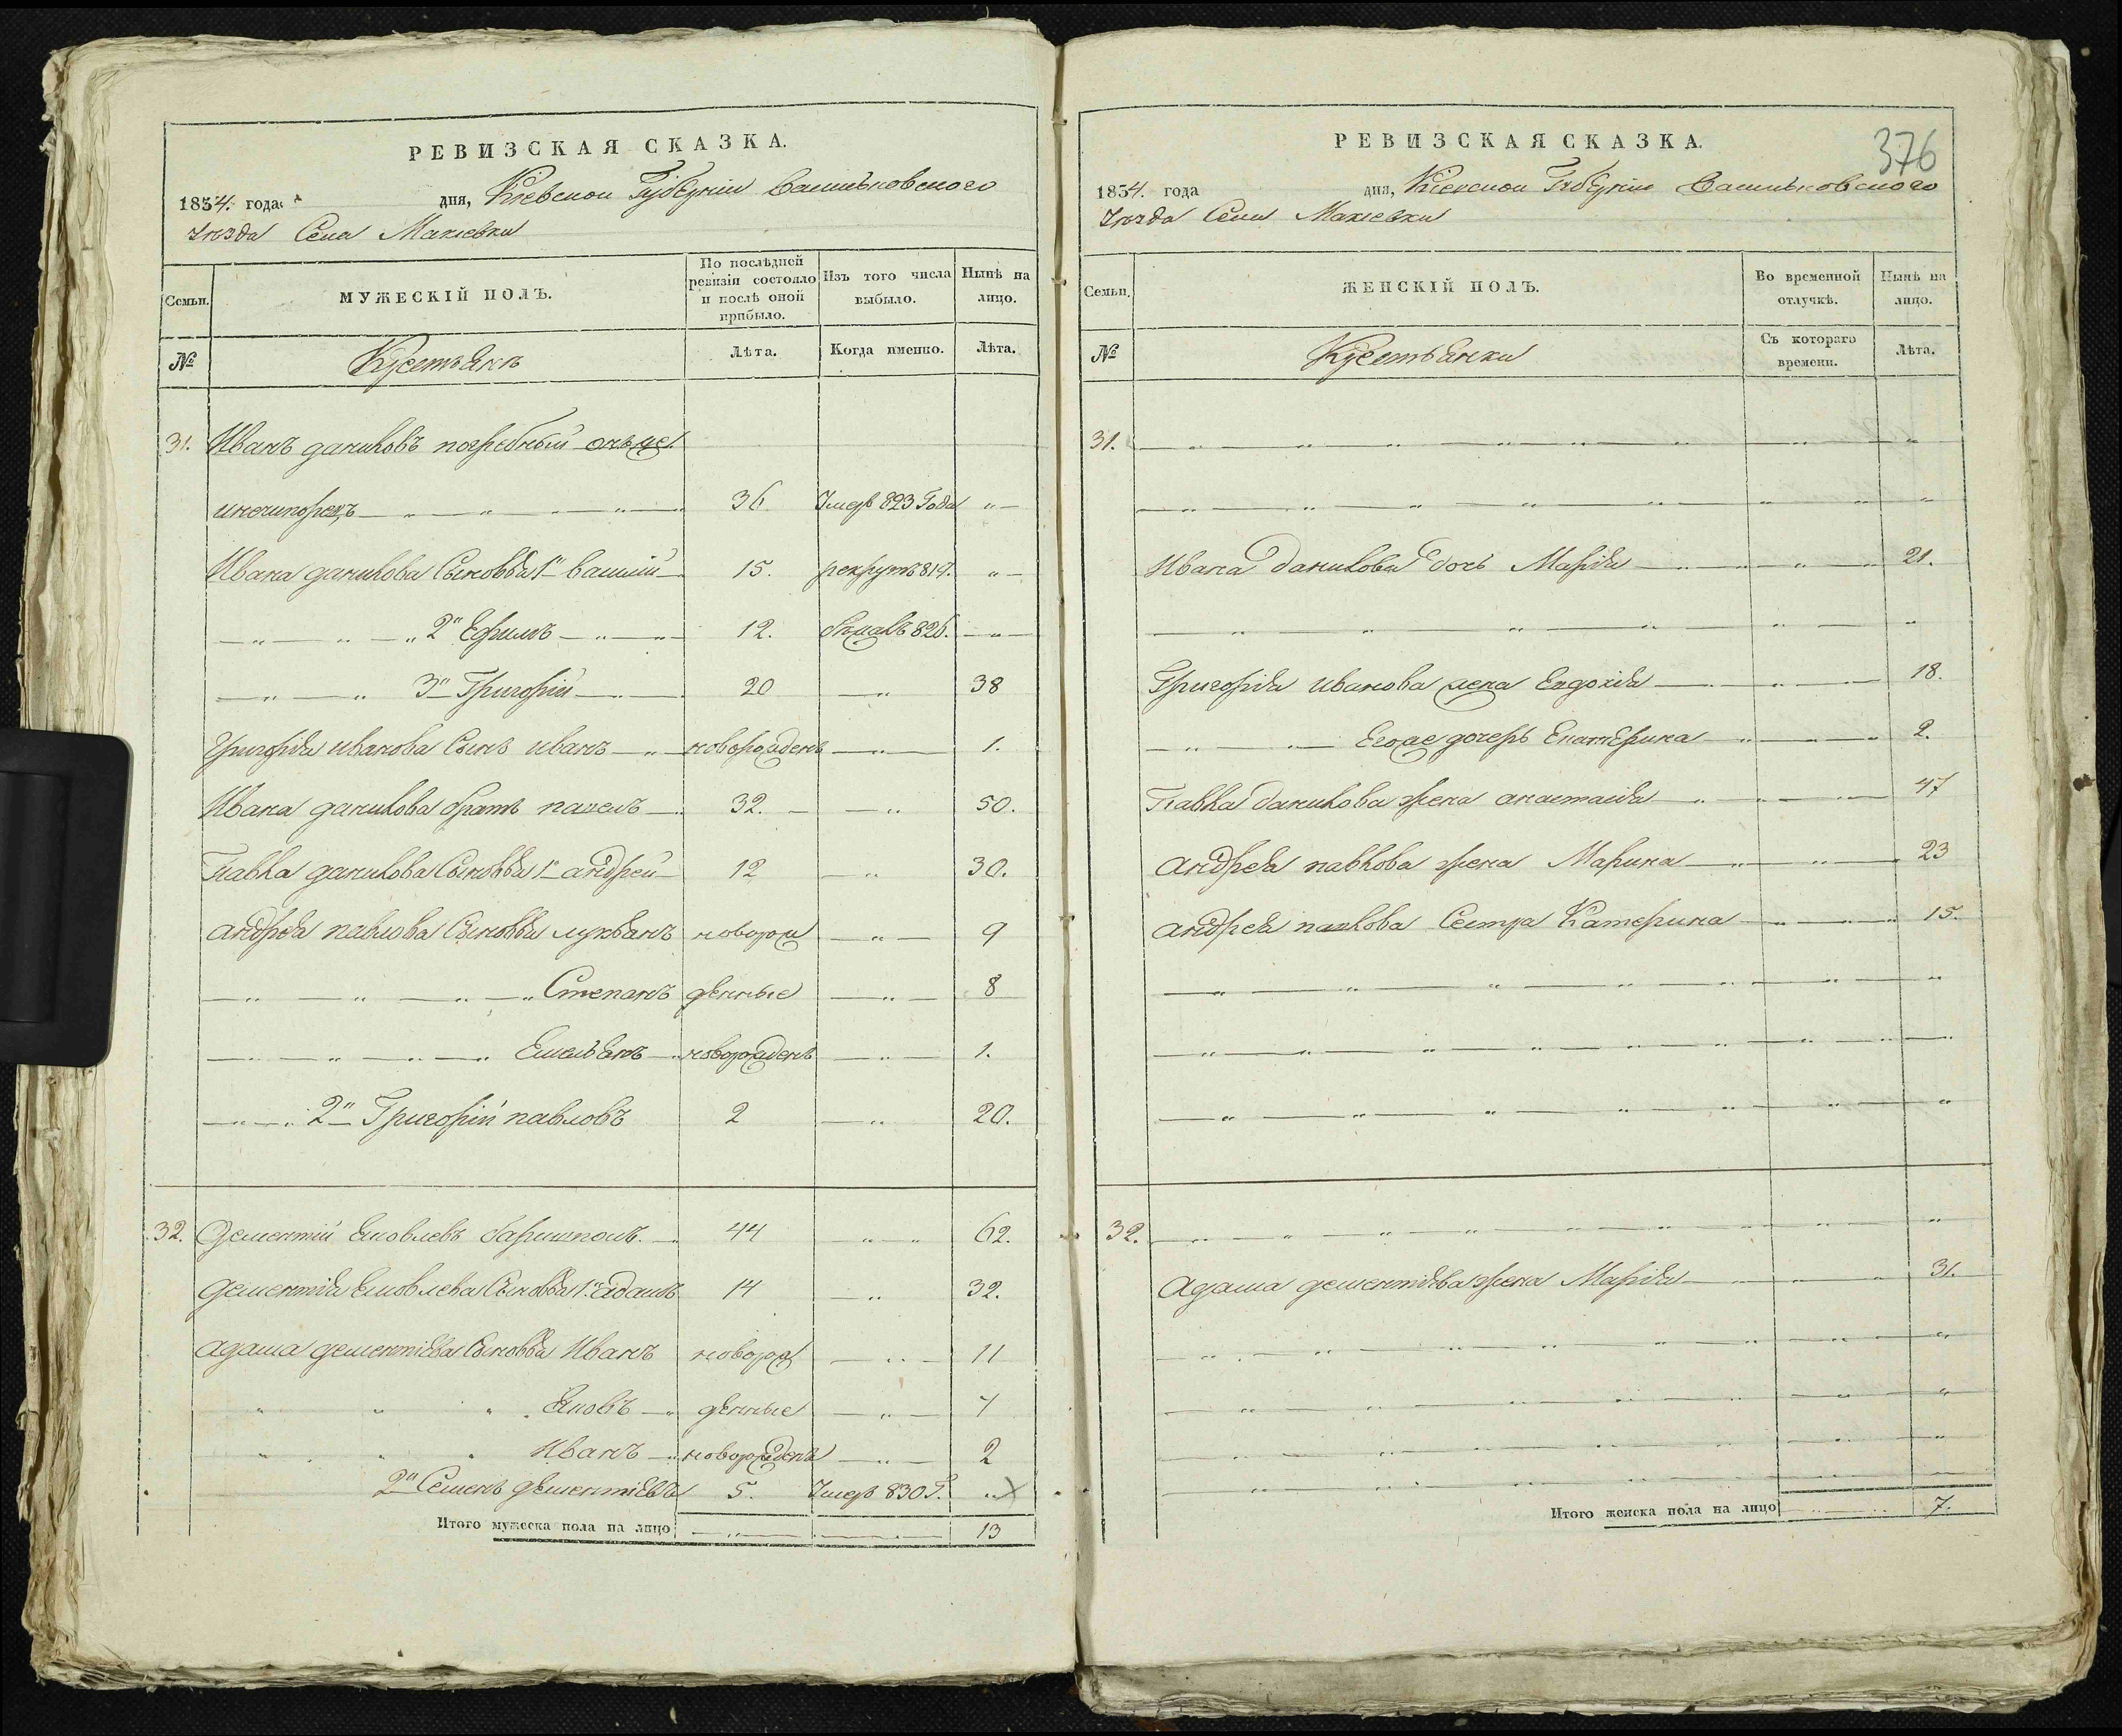 РЕВИЗСКАЯ СКАЗКА.
1834. года дня, Кіевской Губерніи Васильковского
Уѣзда Села Макіевки
Семьи. МУЖЕСКІЙ ПОЛЪ. По послѣдней ревизіи состояло и послѣ оной прибыло. Изъ того числа выбыло. Нынѣ на лицо.
№ Крестьянъ Лѣта. Когда именно. Лѣта.
31. Иванъ даниловъ погребный онъже
инечипорецъ 36 Умеръ 823 Года
Ивана данилова Сыновья 1й василій 15. рекрутъ 819.
2й Ефимъ 12. бѣжалъ 826.
3й Григорій 20 38
Григорія иванова Сынъ иванъ новорожденъ 1.
Ивана данилова братъ павелъ 32. 50.
Павла данилова Сыновья 1й андрей 12 30.
андрея павлова Сыновья лукьянъ новорож 9
Степанъ денные 8
Емельянъ новорожденъ 1.
2й Григорій павловъ 2 20.
32. Дементій Яковлевъ 44 62.
Дементія Яковлева Сыновья 1й адамъ 14 32.
адама дементіева Сыновья Иванъ новорож 11
Яковъ денные 7
Иванъ новорожденъ 2
2й Семенъ дементіевъ 5. Умеръ 830 Г.
Итого мужеска пола на лицо 13
376
РЕВИЗСКАЯ СКАЗКА.
1834. года дня, Кіевской Губерніи Васильковского
Уѣзда Села Макіевки
Семьи. ЖЕНСКІЙ ПОЛЪ. Во временной отлучкѣ. Нынѣ на лицо.
№ Крестьянки Съ котораго времени. Лѣта.
31.
Ивана данилова дочь Марія 21.
Григорія иванова жена Евдокія 18.
Егоже дочерь Екатерина 2.
Павла данилова жена анастасія 47
андрея павлова жена Марина 23
андрея павлова Сестра Катерина 15.
32.
Адама дементіева жена Марія 31.
Итого женска пола на лицо 7.